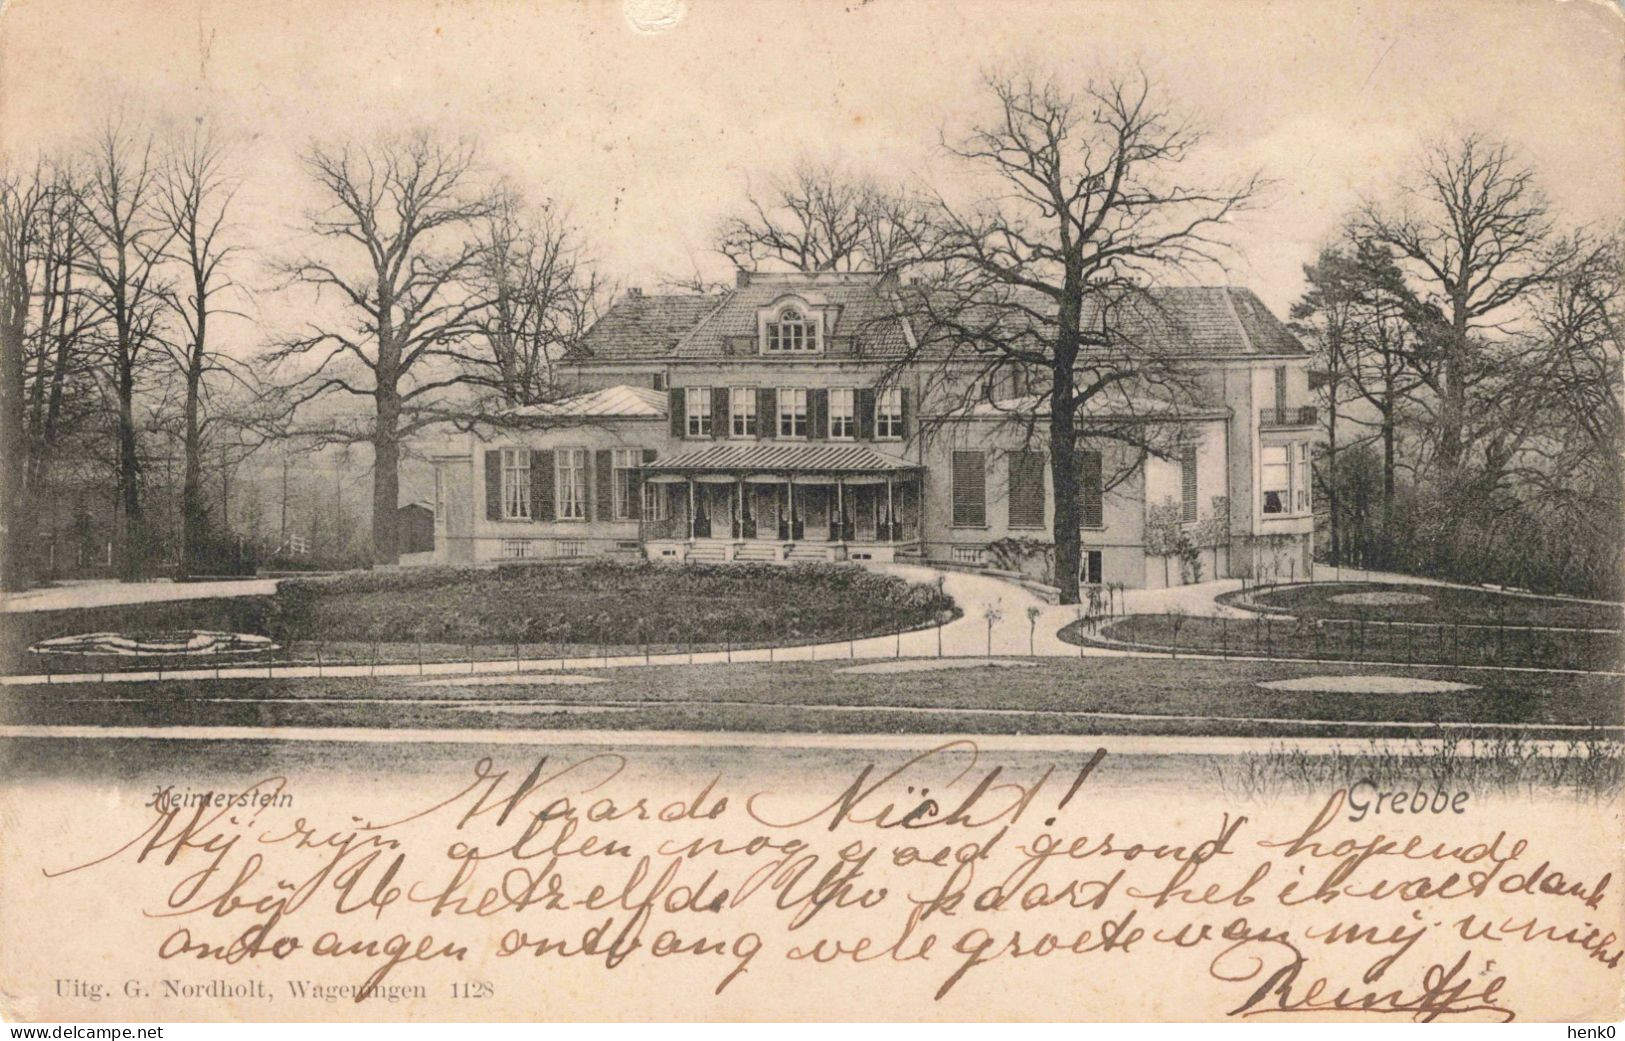 Heimerstein
Grebbe
Waarde Nicht!
Wij zijn allen nog goed gezond hopende
bij U hetzelfde Uw kaart heb ik met dank
ontvangen ontvang vele groete van mij u nicht
Reintje
Uitg. G. Nordholt, Wageningen 1128
www.delcampe.net
henk0